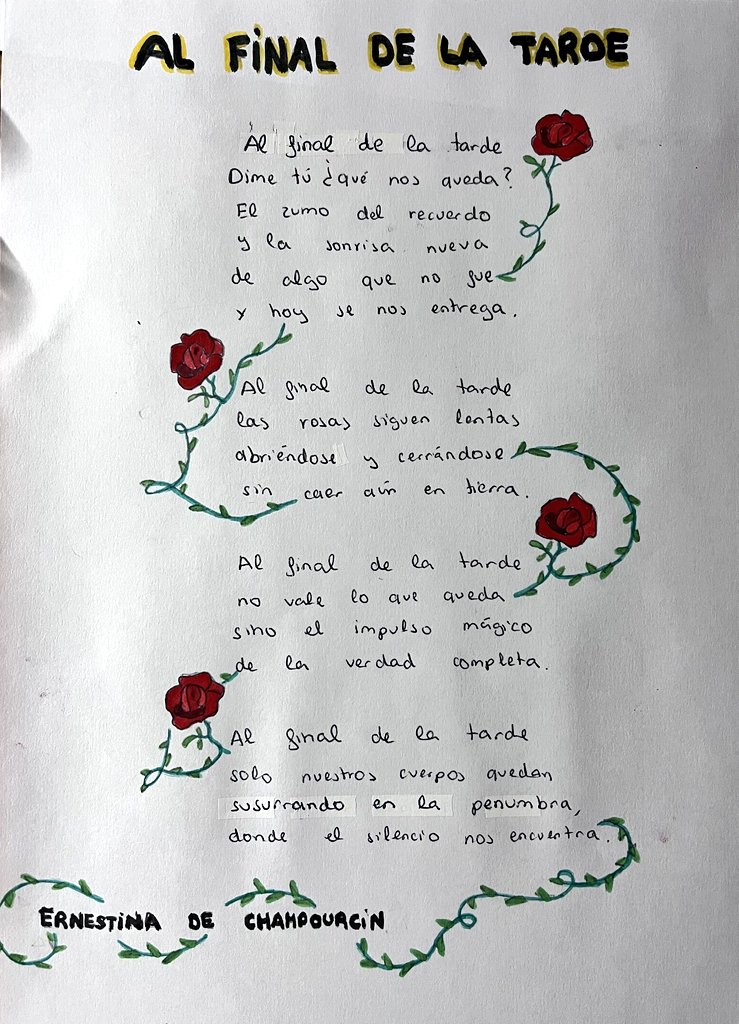 AL FINAL DE LA TARDE
Al final de la tarde
Dime tú ¿qué nos queda?
El zumo del recuerdo
y la sonrisa nueva
de algo que no fue
y hoy se nos entrega.
Al final de la tarde
las rosas siguen lentas
abriéndose y cerrándose
sin caer aún en tierra.
Al final de la tarde
no vale lo que queda
sino el impulso mágico
de la verdad completa.
Al final de la tarde
solo nuestros cuerpos quedan
susurrando en la penumbra,
donde el silencio nos encuentra.
ERNESTINA DE CHAMPOURCIN